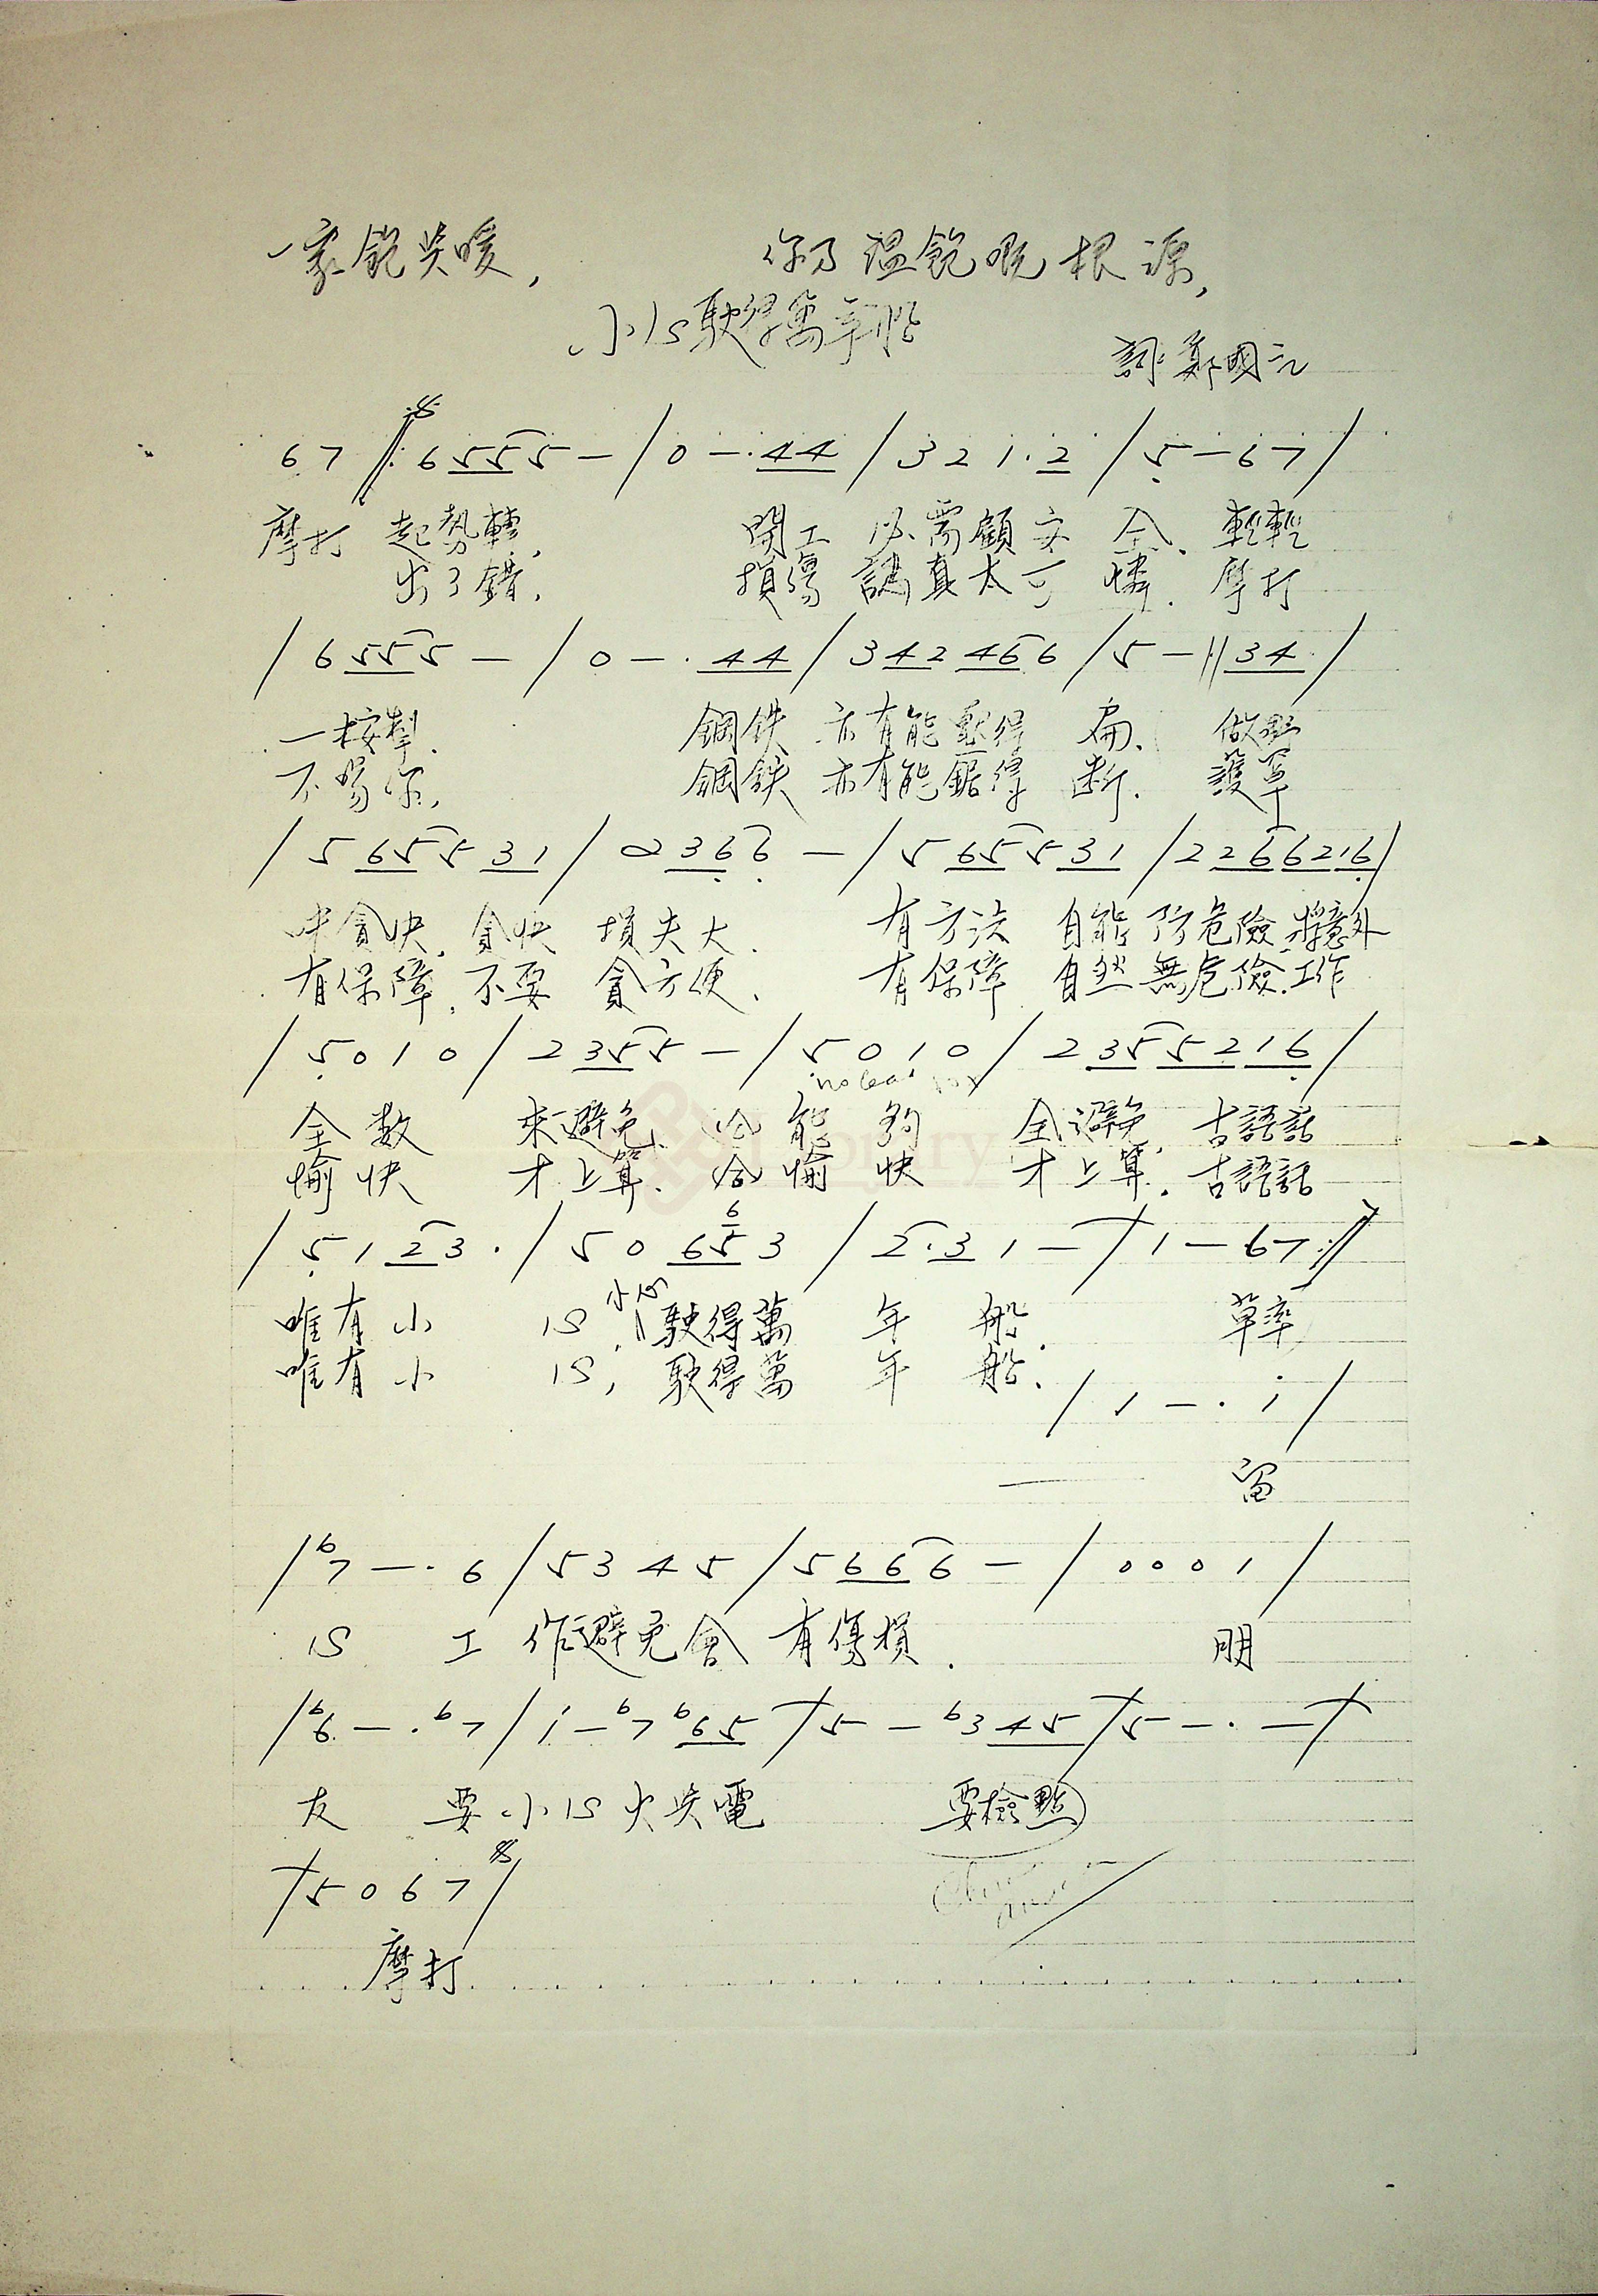 一家飽與暖, 你乃溫飽嘅根源,
小心駛得萬年船
詞: 鄭國江
67 ‖: 6 5 5 5 – / 0 – · 4 4 / 3 2 1 · 2 / 5 – 6 7 /
摩打 起勢轉, 開工 必需顧安 全、輕輕
出了錯, 損傷 認真太可 憐. 摩打
/ 6 5 5 5 – / 0 – · 4 4 / 3 4 2 4 6 6 / 5 – ‖ 3 4 /
一按掣. 鋼鉄 亦有能壓得 扁、 做野
不易停, 鋼鉄 亦有能鋸得 断. 護罩
/ 5 6 5 5 3 1 / 0 2 3 6 6 – / 5 6 5 5 3 1 / 2 2 6 6 2 1 6 /
咪貪快, 貪快 損失大. 有方法 自能防危險. 將意外
有保障, 不要 貪方便、 有保障 自然無危險. 工作
/ 5 0 1 0 / 2 3 5 5 – / 5 0 1 0 / 2 3 5 5 2 1 6 /
全數 來避免、 能夠 全避免, 古語話
愉快 才上算、 愉快 才上算. 古語話
/ 5 1 2 3 · / 5 0 6 5 3 / 2 · 3 1 – / 1 – 6 7 :‖
唯有小 心, 小心 駛得萬 年 船. 草率
唯有小 心, 駛得萬 年 船.
/ 1 – · i /
— 留
/ b7 – · 6 / 5 3 4 5 / 5 6 6 6 – / 0 0 0 1 /
心 工 作避免會 有傷損. 朋
/ b6 – · b7 / i – b7 b6 5 / 5 – b3 4 5 / 5 – · – /
友 要小心火與電 要檢點
/ 5 0 6 7 /
摩打